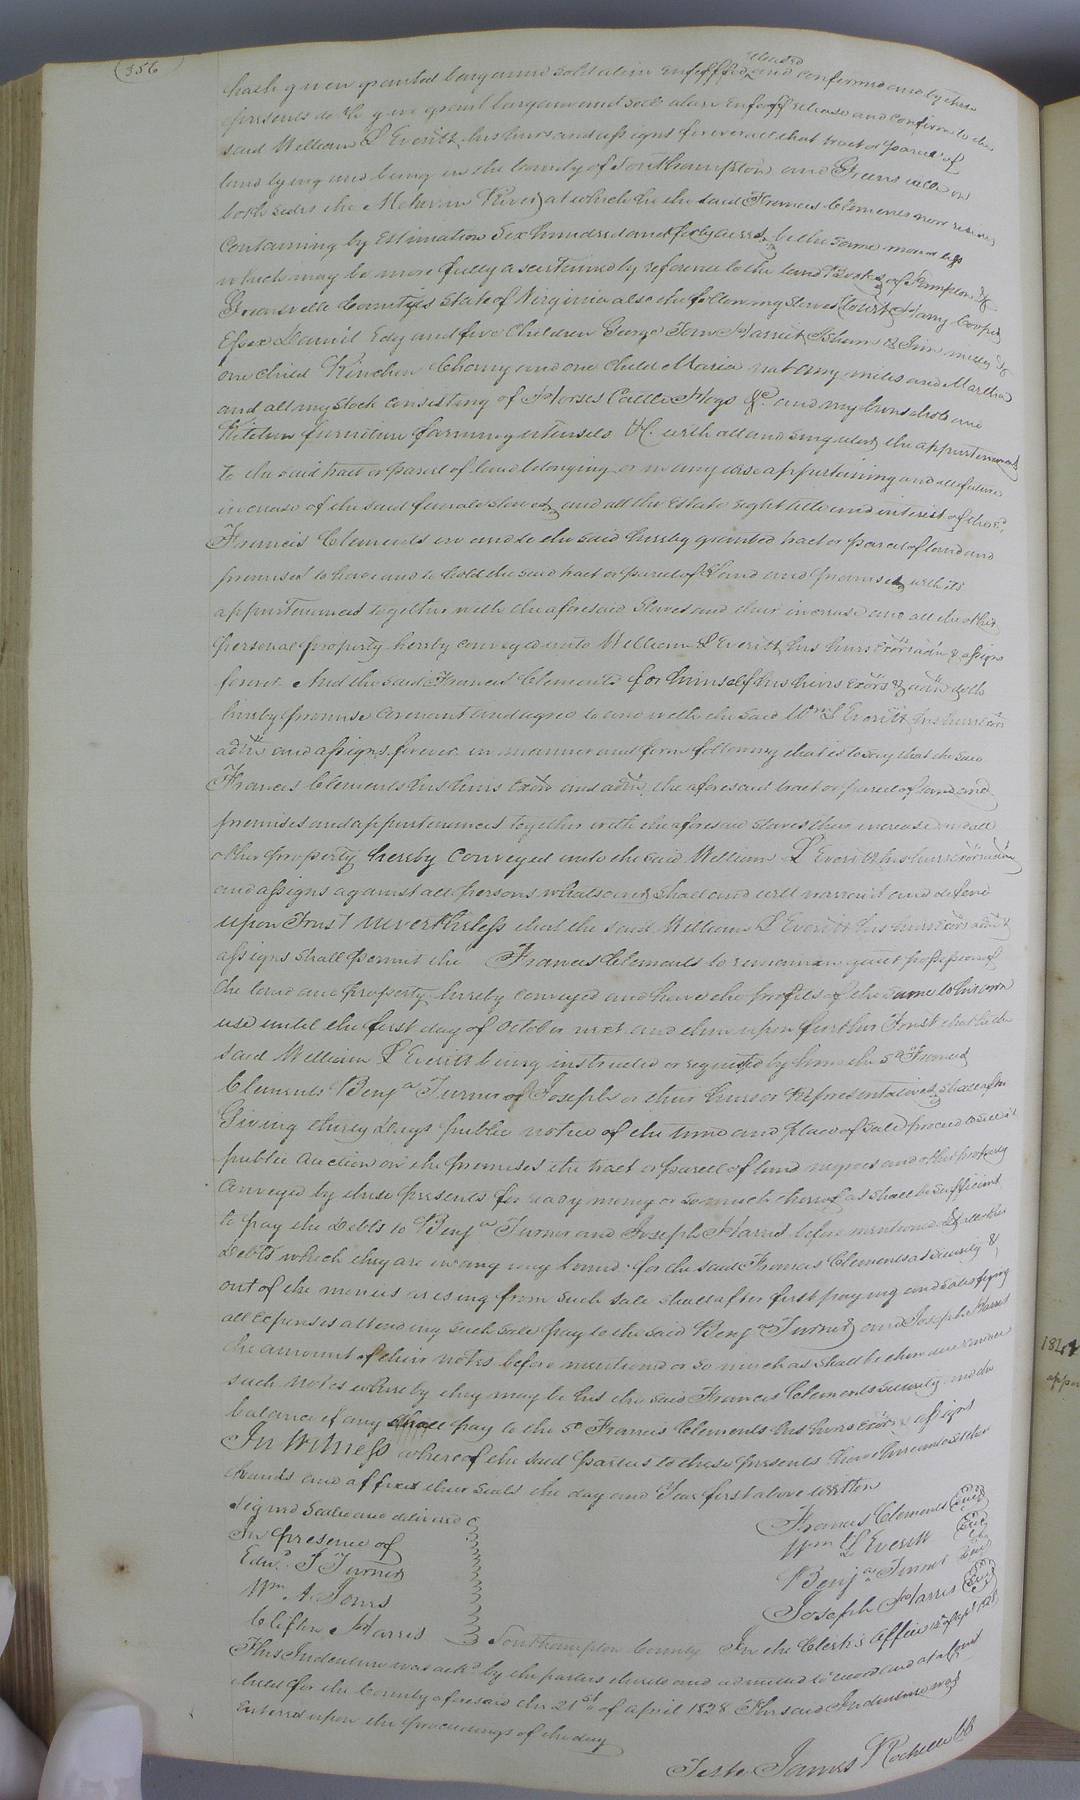 (356
released
hath given granted bargained sold alien enfeoffed and confirmed and by these
presents doth give grant bargain and sell alien enfeoff release and confirm to the
said William L Everitt his heirs and assigns forever all that tract or parcel of
land lying and being in the County of Southampton and Greensville on
both sides the Meherrin River at which he the said Francis Clements now resides
Containing by Estimation Six hundred and forty acres be the same more or less
which may be more fully ascertained by reference to the land Books of Hampton &
Greensville Counties State of Virginia also the following slaves Harry Cooper
Essex Daniel Edy and five Children George Tom Harriet Isham & Jim milly &
one child Kinchen Charry and one Child Maria nat amy miles and Martha
and all my stock consisting of Horses Cattle Hogs &c. and my household and
Kitchen furniture farming utensils &c. with all and singular the appurtenances
to the said tract or parcel of land belonging or in any wise appertaining and all future
increase of the said female slaves and all the Estate right title and interest of the sd
Francis Clements in and to the said hereby granted tract or parcel of land and
premises to have and to hold the said tract or parcel of Land and premises with its
appurtenances together with the aforesaid Slaves and their increase and all the other
personal property hereby conveyed unto William L Everitt his heirs exors admr & assigns
forever And the said Francis Clements for himself his heirs exors & adm doth
hereby promise covenant and agree to and with the said Wm L Everitt his heirs exors
admr and assigns forever in manner and form following that is to say that the said
Francis Clements his heirs exors and admr the aforesaid tract or parcel of land and
premises and appurtenances together with the aforesaid slaves their increase and all
other property hereby conveyed unto the said William L Everitt his heirs exors admr
and assigns against all persons whatsoever shall and will warrant and defend
upon Trust nevertheless that the said William L Everitt his heirs exors admr &
assigns shall permit the Francis Clements to remain in quiet possession of
the land and property hereby conveyed and have the profits of the same to his own
use until the first day of October next and then upon further Trust that he the
said William L Everitt being instructed or requested by him the sd Francis
Clements Benja Turner of Joseph or their heirs or Representatives shall after
Giving thirty days public notice of the time and place of sale proceed to sell at
public auction on the premises the tract or parcel of land negroes and other property
Conveyed by these presents for ready money or so much thereof as shall be sufficient
to pay the debts to Benja Turner and Joseph Harris before mentioned & all other
debts which they are in any way bound for the said Francis Clements as security &
out of the monies arising from such sale shall after first paying and satisfying
all expenses attending such sale pay to the said Benja Turner and Joseph Harris
the amount of their notes before mentioned or so much as shall be then due under
such notes whereby they may be his the said Francis Clements security and the
balance if any shall pay to the sd Francis Clements his heirs exors & assigns
In Witness whereof the said parties to these presents have hereunto set their
hands and affixed their seals the day and Year first above written
Signed Sealed and delivered Francis Clements (Seal)
In presence of Wm L Everitt (Seal)
Edwd. J Turner Benja Turner (Seal)
Wm A. Jones Joseph Harris (Seal)
Clifton Harris Southampton County In the Clerk's Office Sept 1828
This Indenture was ackd by the parties thereto and admitted to record and at a Court
held for the County aforesaid the 21st of april 1828 The said Indenture was
entered upon the proceedings of the day
Teste James Rochelle Clk